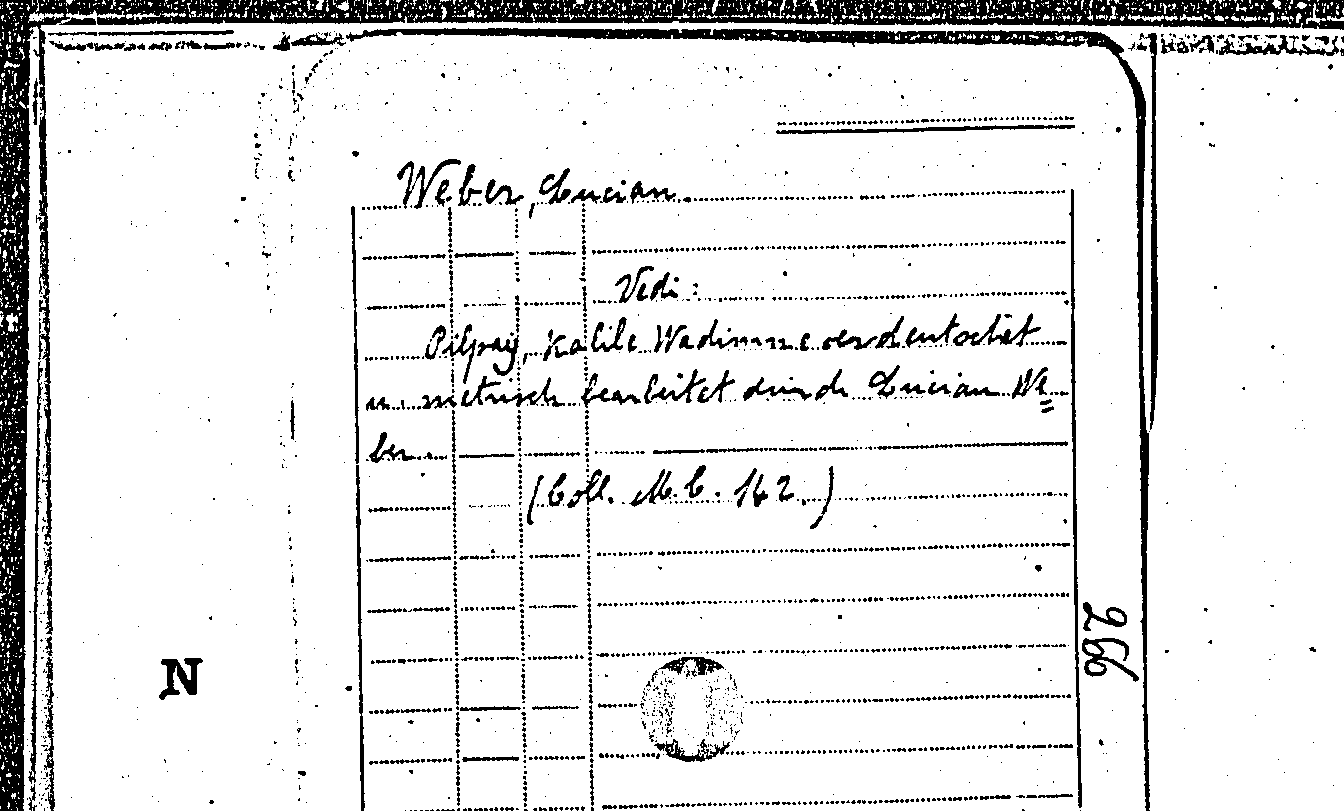 Weber, Lucian.
Vedi:
Pilpay, Kalile Wadimne verdeutschet
u. metrisch bearbeitet durch Lucian We=
ber.
(Coll. M.C. 142.)
266
N